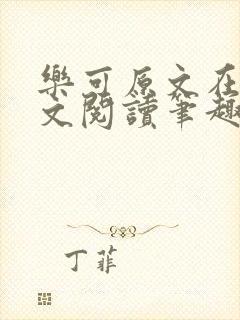 樂可原文在
文閱讀筆趣
丁菲